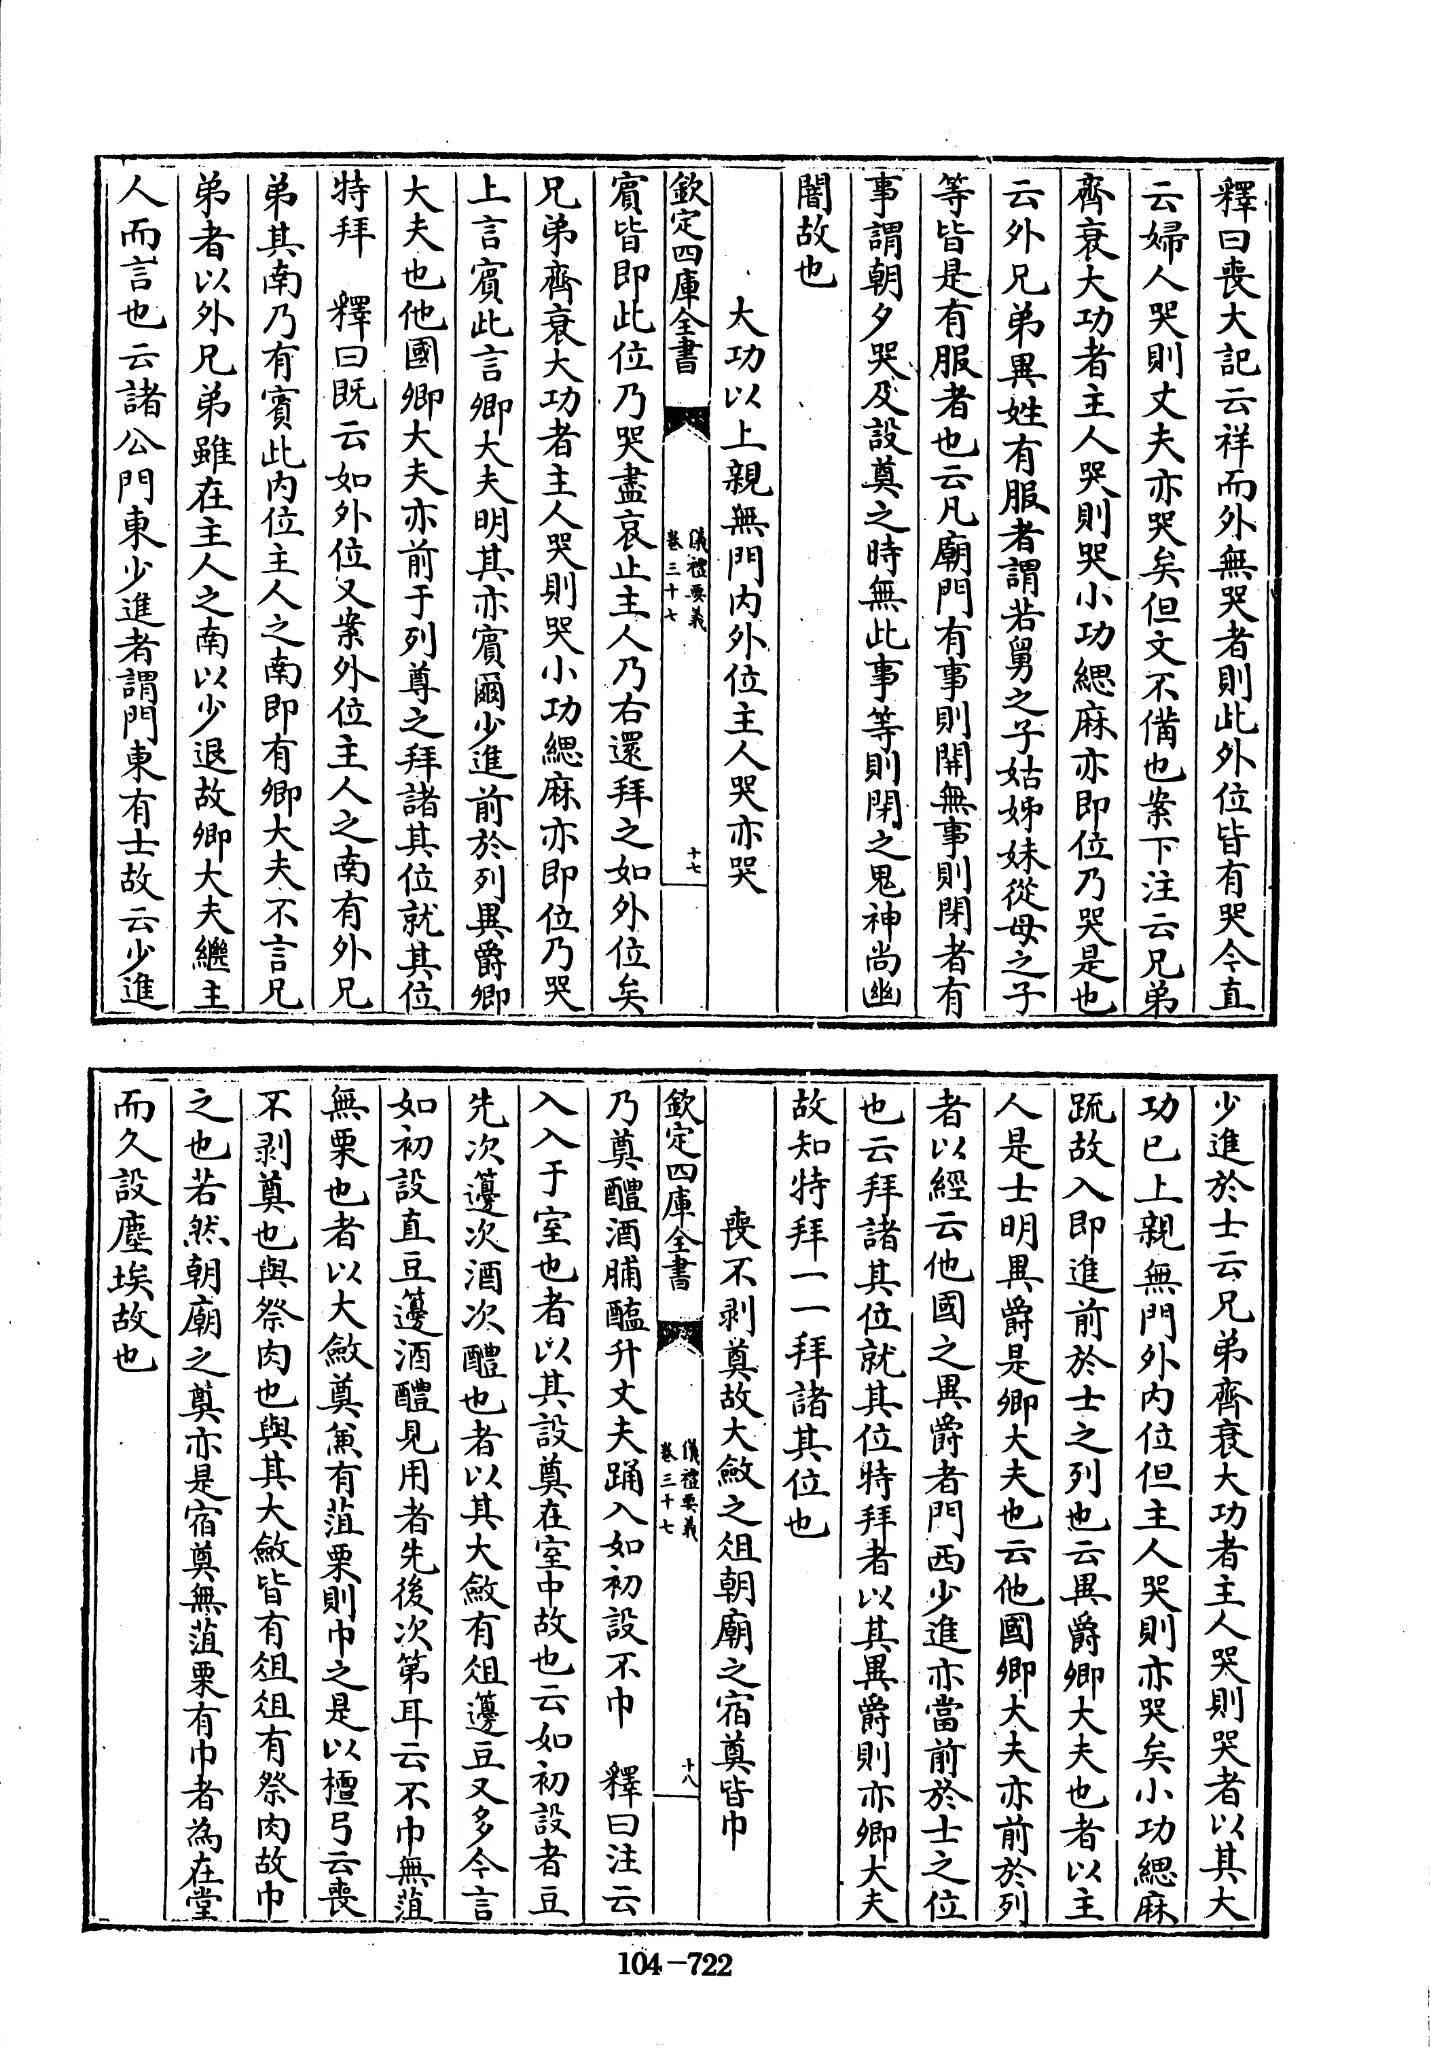 釋曰喪大記云祥而外無哭者則此外位皆有哭今直
云婦人哭則丈夫亦哭矣但文不備也案下注云兄弟
齊衰大功者主人哭則哭小功緦麻亦即位乃哭是也
云外兄弟異姓有服者謂若舅之子姑姊妹從母之子
等皆是有服者也云凡廟門有事則開無事則閉者有
事謂朝夕哭及設奠之時無此事等則閉之鬼神尚幽
闇故也
大功以上親無門内外位主人哭亦哭
欽定四庫全書
儀禮要義
卷三十七
十七
賔皆即此位乃哭盡哀止主人乃右還拜之如外位矣
兄弟齊衰大功者主人哭則哭小功緦麻亦即位乃哭
上言賔此言卿大夫明其亦賔爾少進前於列異爵卿
大夫也他國卿大夫亦前于列尊之拜諸其位就其位
特拜　釋曰既云如外位又案外位主人之南有外兄
弟其南乃有賔此内位主人之南即有卿大夫不言兄
弟者以外兄弟雖在主人之南以少退故卿大夫繼主
人而言也云諸公門東少進者謂門東有士故云少進
少進於士云兄弟齊衰大功者主人哭則哭者以其大
功已上親無門外内位但主人哭則亦哭矣小功緦麻
疏故入即進前於士之列也云異爵卿大夫也者以主
人是士明異爵是卿大夫也云他國卿大夫亦前於列
者以經云他國之異爵者門西少進亦當前於士之位
也云拜諸其位就其位特拜者以其異爵則亦卿大夫
故知特拜一一拜諸其位也
喪不剥奠故大斂之俎朝廟之宿奠皆巾
欽定四庫全書
儀禮要義
卷三十七
十八
乃奠醴酒脯醢升丈夫踊入如初設不巾　釋曰注云
入入于室也者以其設奠在室中故也云如初設者豆
先次籩次酒次醴也者以其大斂有俎籩豆又多今言
如初設直豆籩酒醴見用者先後次第耳云不巾無菹
無栗也者以大斂奠兼有菹栗則巾之是以檀弓云喪
不剥奠也與祭肉也與其大斂皆有俎俎有祭肉故巾
之也若然朝廟之奠亦是宿奠無菹栗有巾者為在堂
而久設塵埃故也
104-722